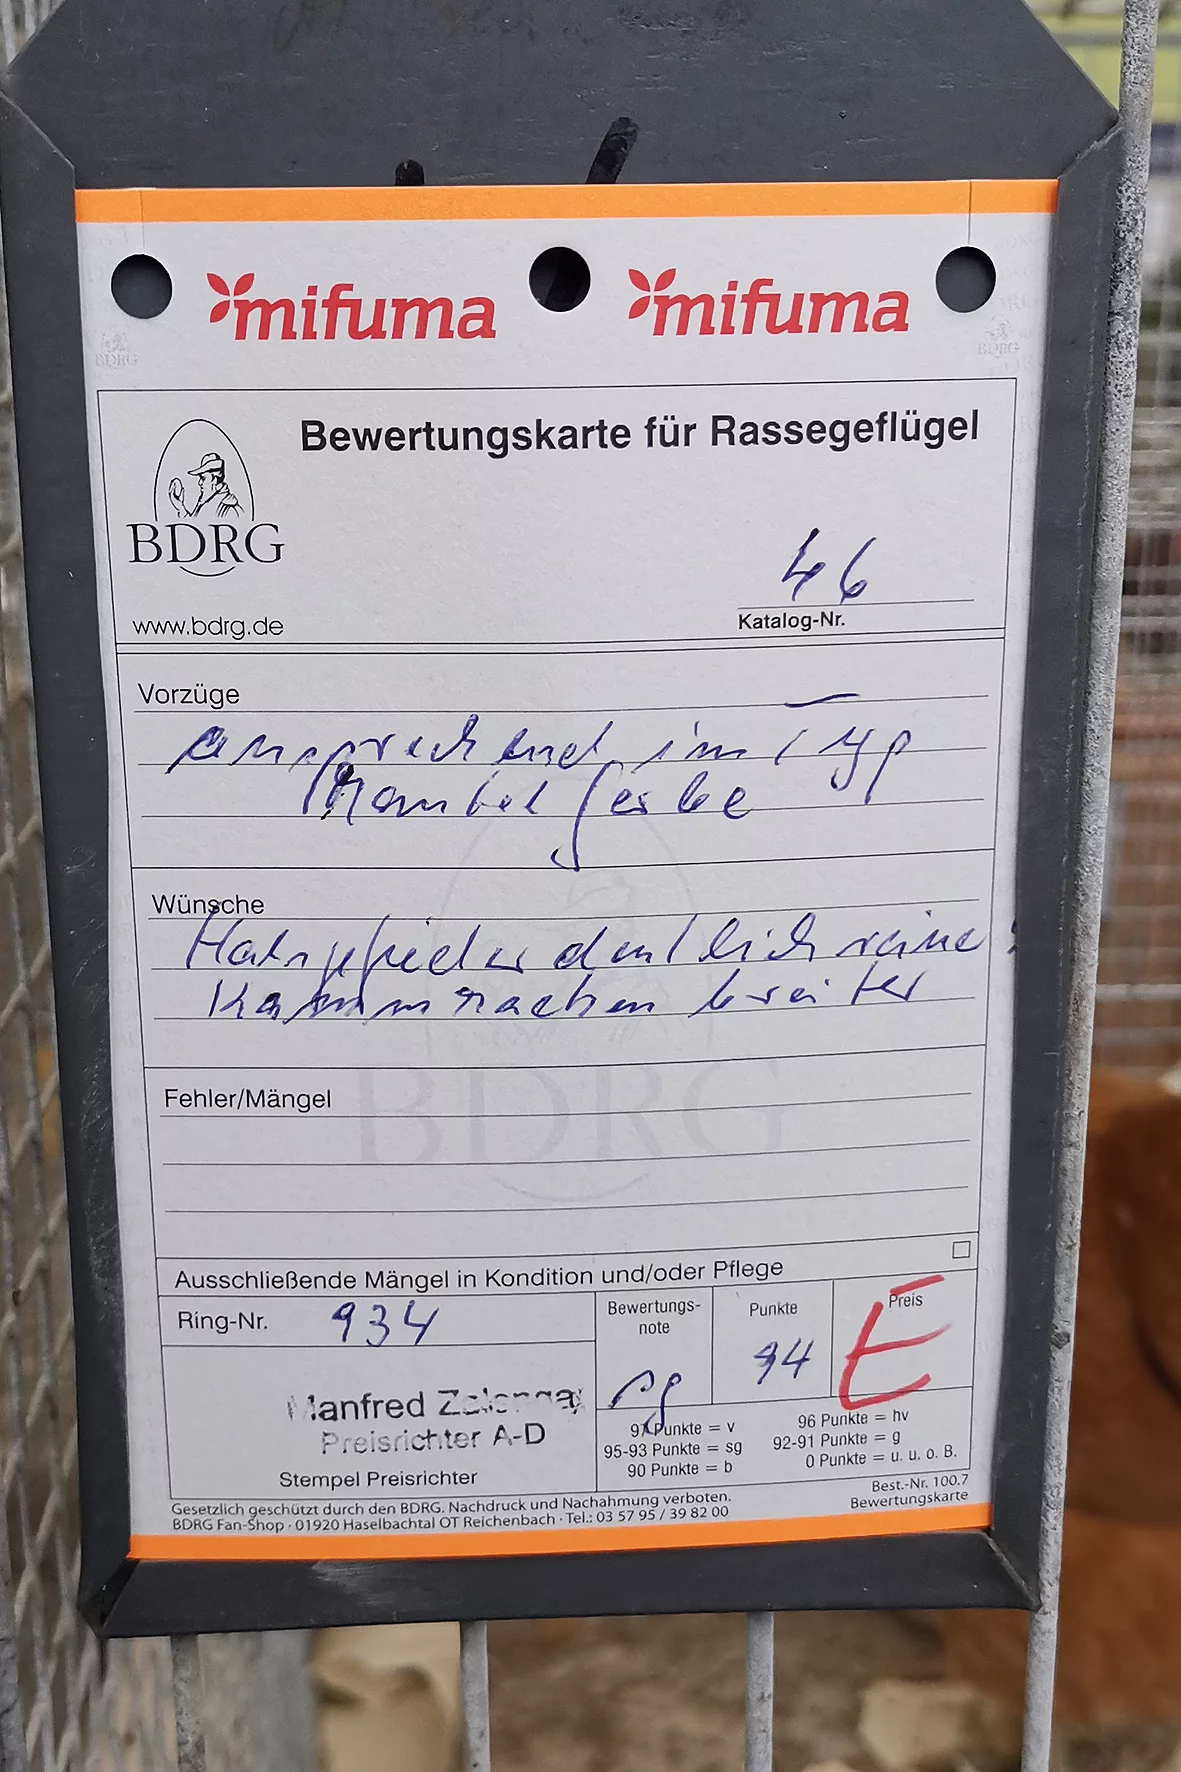 mifuma mifuma
BDRG BDRG
Bewertungskarte für Rassegeflügel
BDRG
www.bdrg.de
46
Katalog-Nr.
Vorzüge
ansprechend im Typ
Mantelfarbe
Wünsche
deutlich reine
Kammzacken breiter
BDRG
Fehler/Mängel
Ausschließende Mängel in Kondition und/oder Pflege
Ring-Nr. 934
Bewertungs-
note
sg
Punkte
94
Preis
E
Manfred
Preisrichter A-D
Stempel Preisrichter
97 Punkte = v
95-93 Punkte = sg
90 Punkte = b
96 Punkte = hv
92-91 Punkte = g
0 Punkte = u. u. o. B.
Gesetzlich geschützt durch den BDRG. Nachdruck und Nachahmung verboten.
BDRG Fan-Shop · 01920 Haselbachtal OT Reichenbach · Tel.: 03 57 95 / 39 82 00
Best.-Nr. 100.7
Bewertungskarte